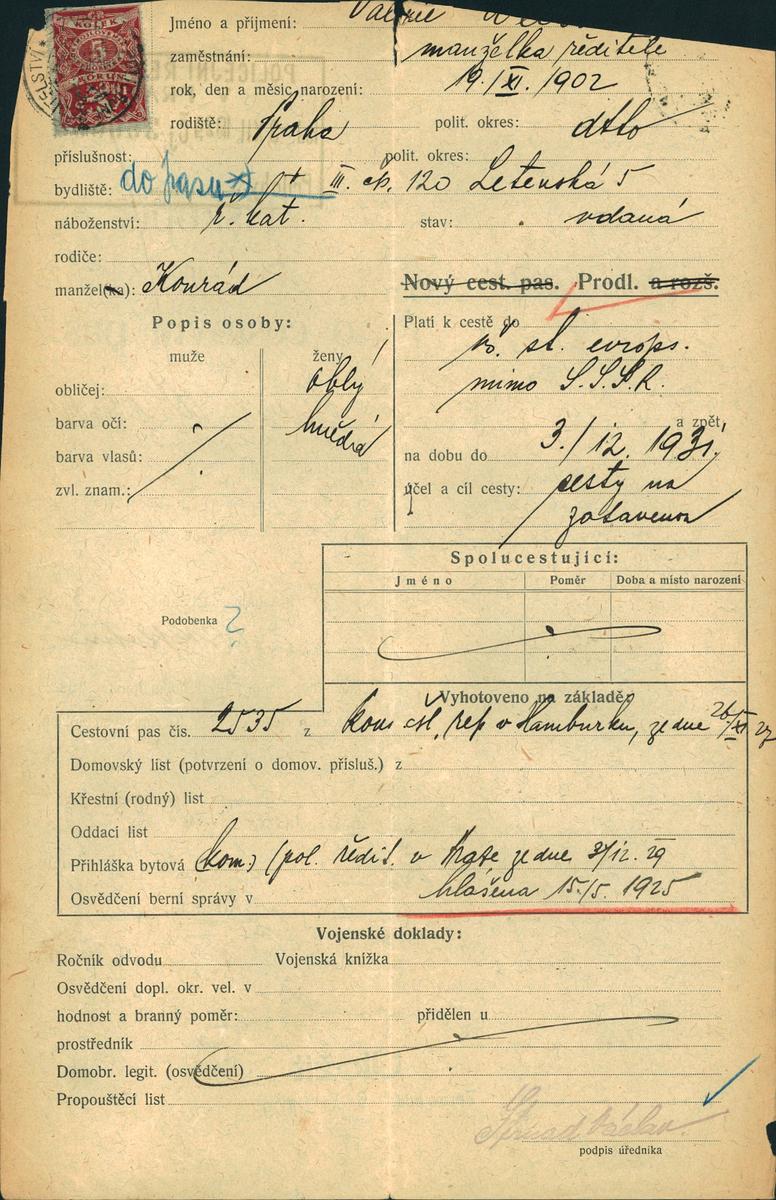 KOLEK
5
KORUN
Jméno a příjmení: Valerie
zaměstnání: manželka ředitele
rok, den a měsíc narození: 19./XI. 1902
rodiště: Praha polit. okres: dtto
příslušnost: polit. okres:
bydliště: do pasu III. čp. 120 Letenská 5
náboženství: ř. kat. stav: vdaná
rodiče:
manžel(ka): Konrád
Nový cest. pas. Prodl. a rozš.
Popis osoby:
muže ženy
obličej: oblý
barva očí: hnědá
barva vlasů:
zvl. znam.:
Platí k cestě do
st. evrops.
mimo S.S.S.R.
a zpět
na dobu do 3./12. 1931.
účel a cíl cesty: cesty na
zotavenou
Spolucestující:
Jméno Poměr Doba a místo narození
Podobenka ?
Vyhotoveno na základě:
Cestovní pas čís. 2535 z kons. čsl. rep. v Hamburku, ze dne 26/XI. 27
Domovský list (potvrzení o domov. přísluš.) z
Křestní (rodný) list
Oddací list
Přihláška bytová kom: (pol. ředit. v Praze ze dne 3/12. 29
Osvědčení berní správy v hlášena 15./5. 1925
Vojenské doklady:
Ročník odvodu Vojenská knížka
Osvědčení dopl. okr. vel. v
hodnost a branný poměr: přidělen u
prostředník
Domobr. legit. (osvědčení)
Propouštěcí list
Václav
podpis úředníka